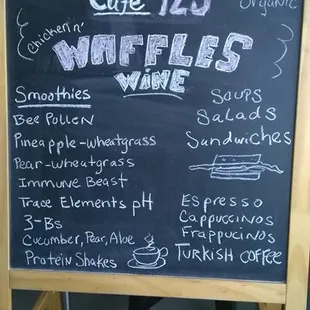 Café 123
Organic
chicken n'
WAFFLES
WINE
Smoothies
Bee Pollen
Pineapple-wheatgrass
Pear-wheatgrass
Immune Beast
Trace Elements pH
3-Bs
Cucumber, Pear, Aloe
Protein Shakes
Soups
Salads
Sandwiches
Espresso
Cappuccinos
Frappucinos
Turkish Coffee